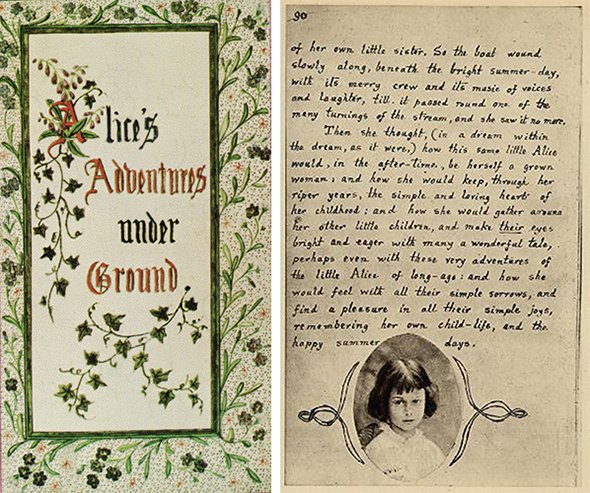 Alice's
Adventures
under
Ground
90
of her own little sister. So the boat wound
slowly along, beneath the bright summer-day,
with its merry crew and its music of voices
and laughter, till it passed round one of the
many turnings of the stream, and she saw it no more.
Then she thought, (in a dream within
the dream, as it were,) how this same little Alice
would, in the after-time, be herself a grown
woman: and how she would keep, through her
riper years, the simple and loving heart of
her childhood: and how she would gather around
her other little children, and make their eyes
bright and eager with many a wonderful tale,
perhaps even with these very adventures of
the little Alice of long-ago: and how she
would feel with all their simple sorrows, and
find a pleasure in all their simple joys,
remembering her own child-life, and the
happy summer days.